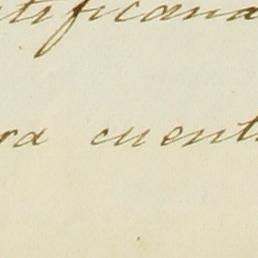 tificand
ra cuent